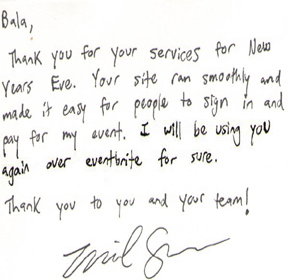 Bala,
Thank you for your services for New
Years Eve. Your site ran smoothly and
made it easy for people to sign in and
pay for my event. I will be using you
again over eventbrite for sure.
Thank you to you and your team!